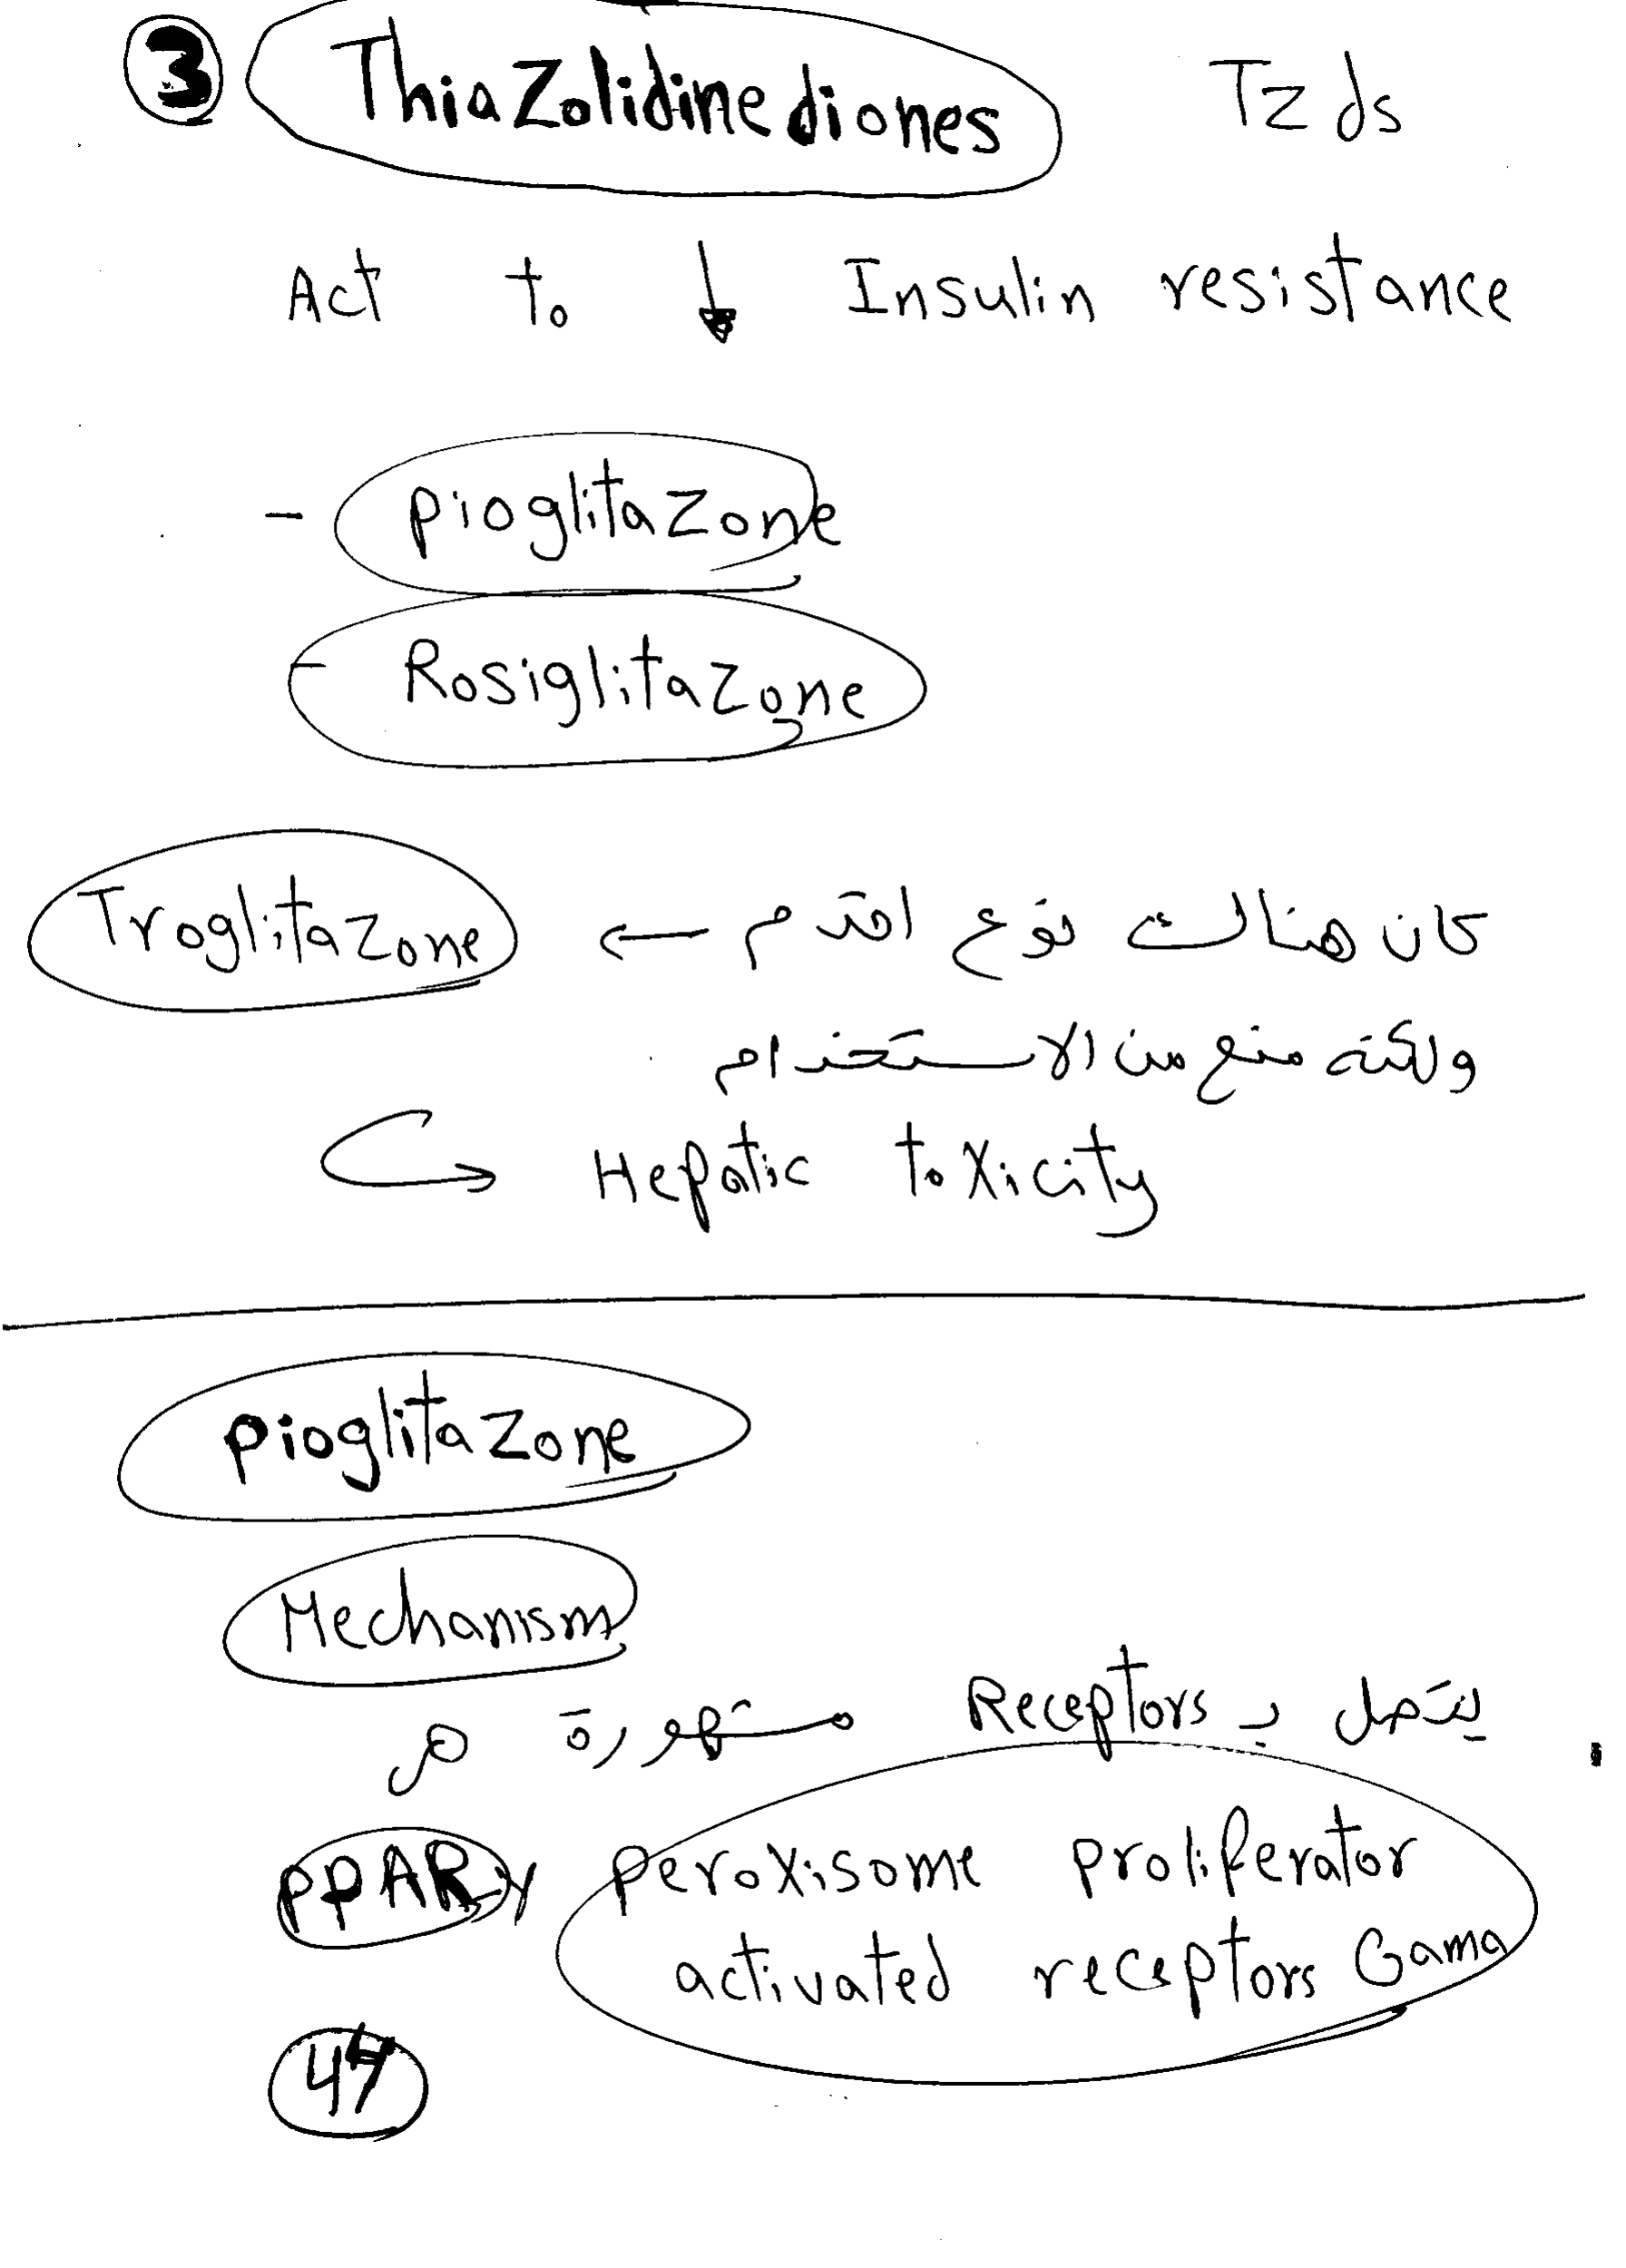 ③ Thiazolidinediones Tzds
Act to ↓ Insulin resistance
- pioglitazone
- Rosiglitazone
كان هناك نوع اقدم ← Troglitazone
ولكنه منع من الاستخدام
Hepatic toxicity
pioglitazone
Mechanism
يتصل بـ Receptors مشهورة هي
PPARγ peroxisome proliferator
activated receptors Gama
47